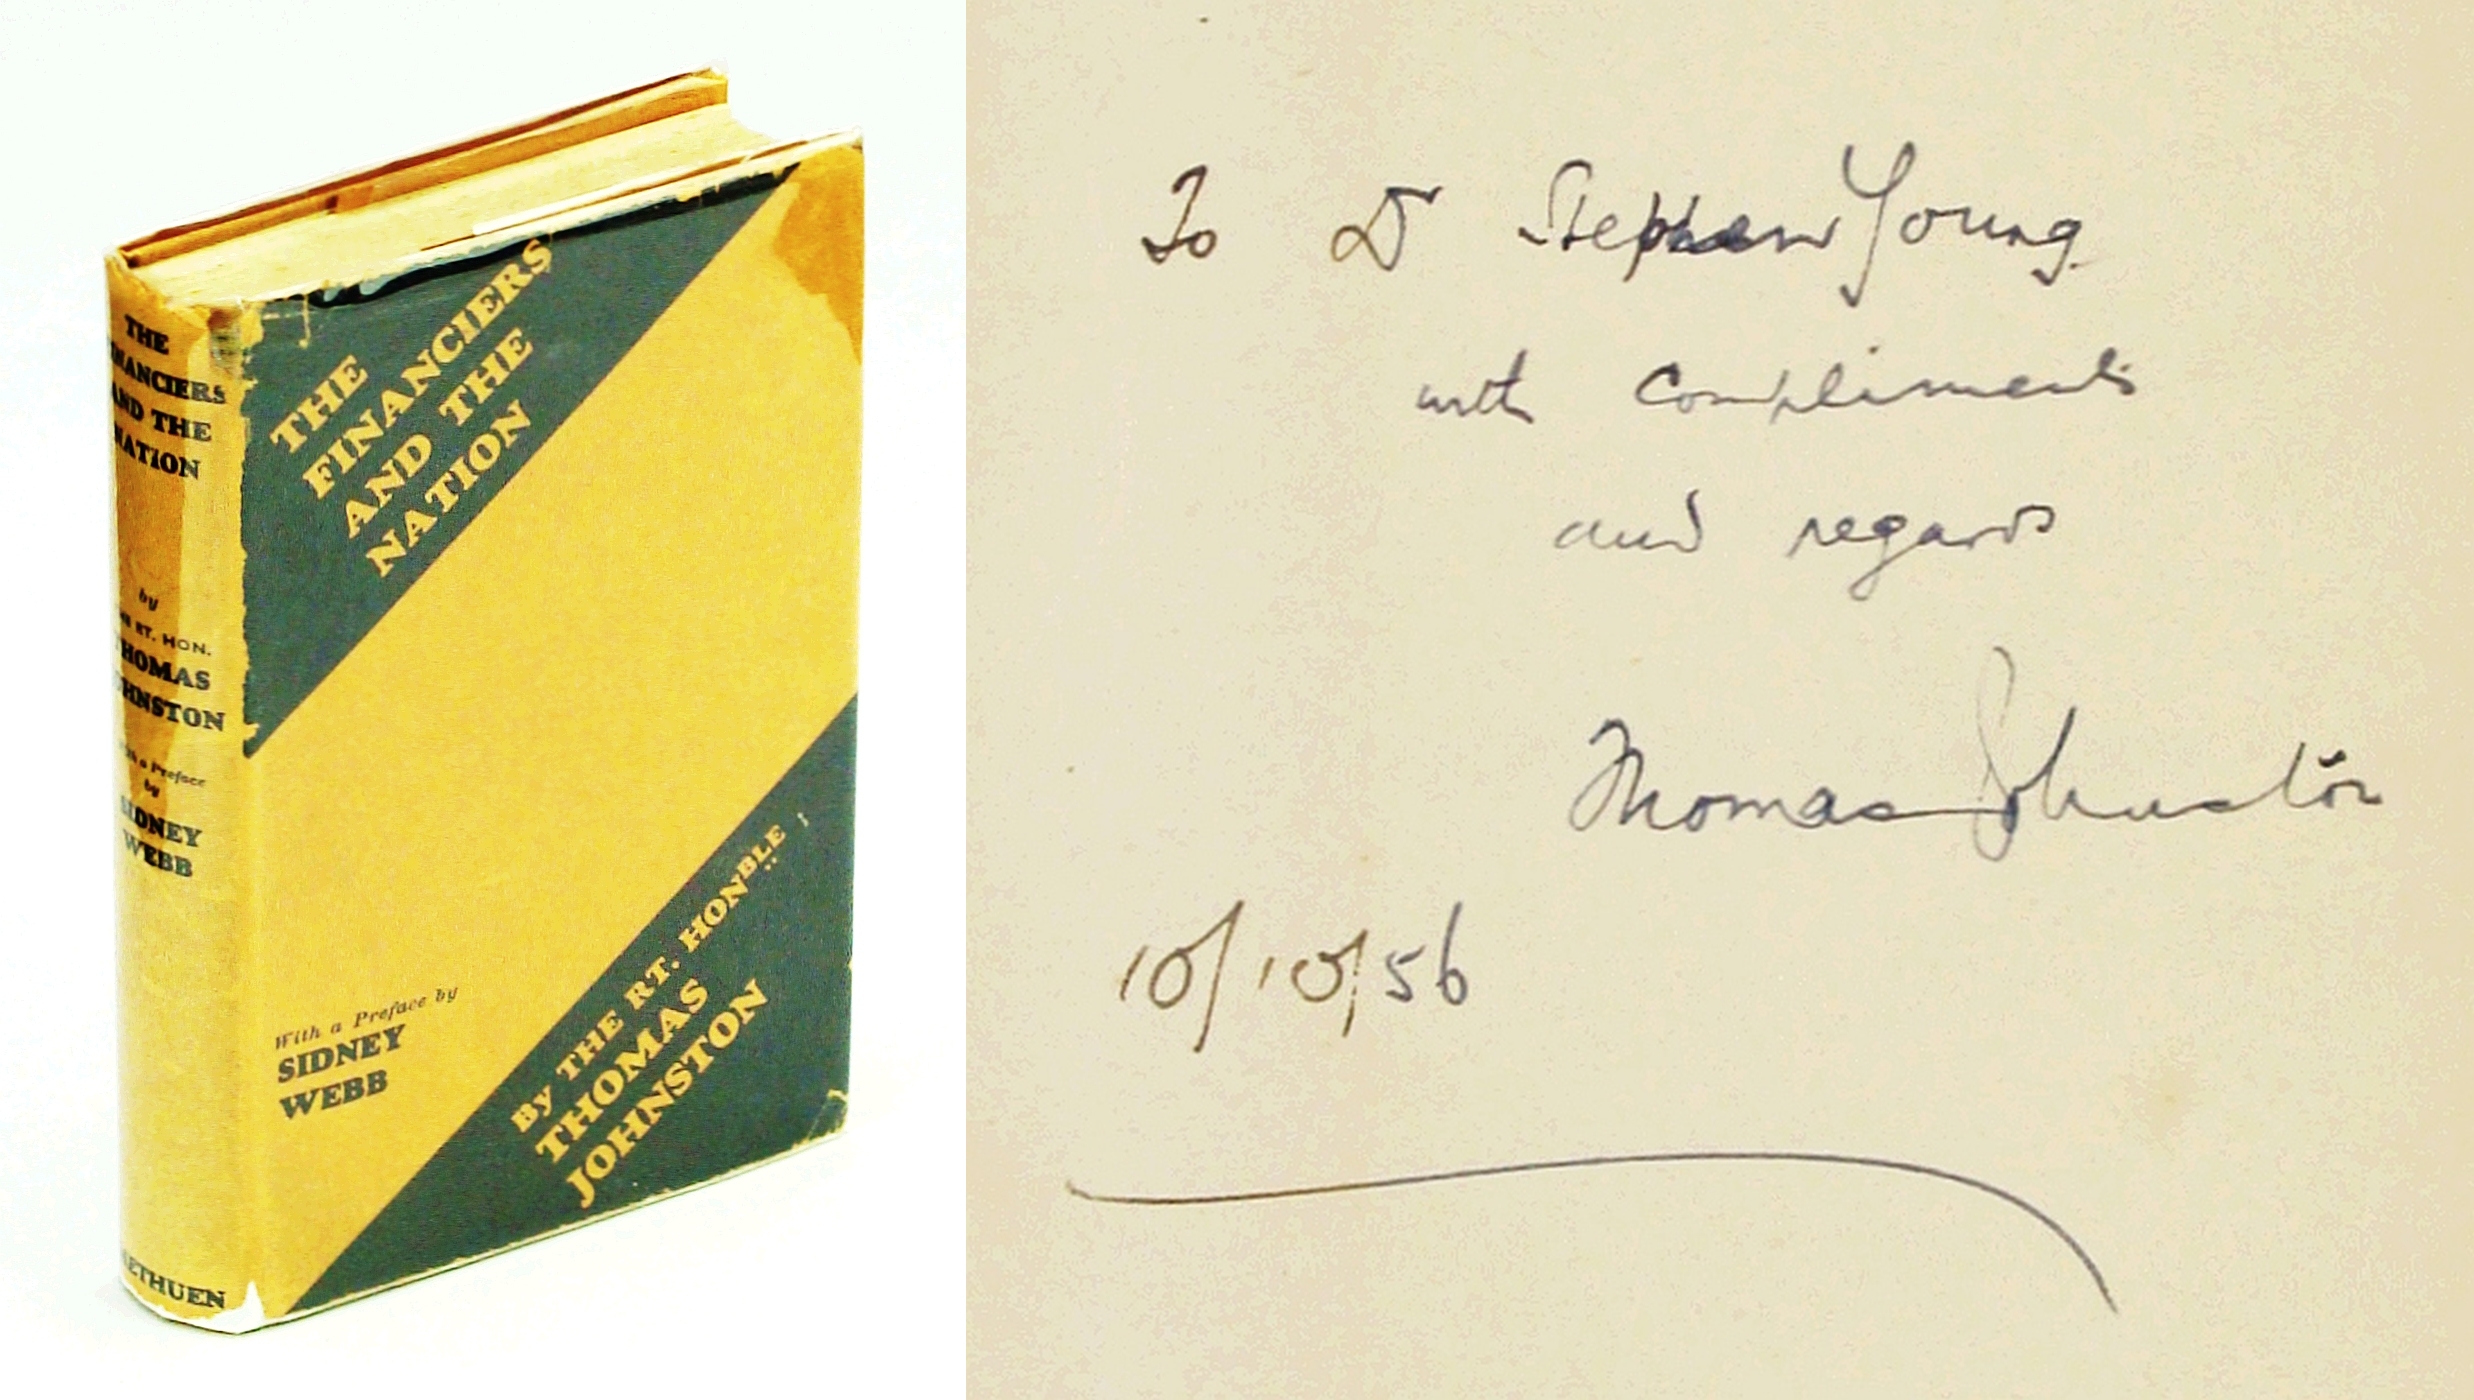 THE
FINANCIERS
AND THE
NATION
by
THE RT. HON.
THOMAS
JOHNSTON
With a Preface
by
SIDNEY
WEBB
METHUEN
THE
FINANCIERS
AND THE
NATION
With a Preface by
SIDNEY
WEBB
By THE RT. HONBLE
THOMAS
JOHNSTON
To Dr Stephen Young
with compliments
and regards
Thomas Johnston
10/10/56